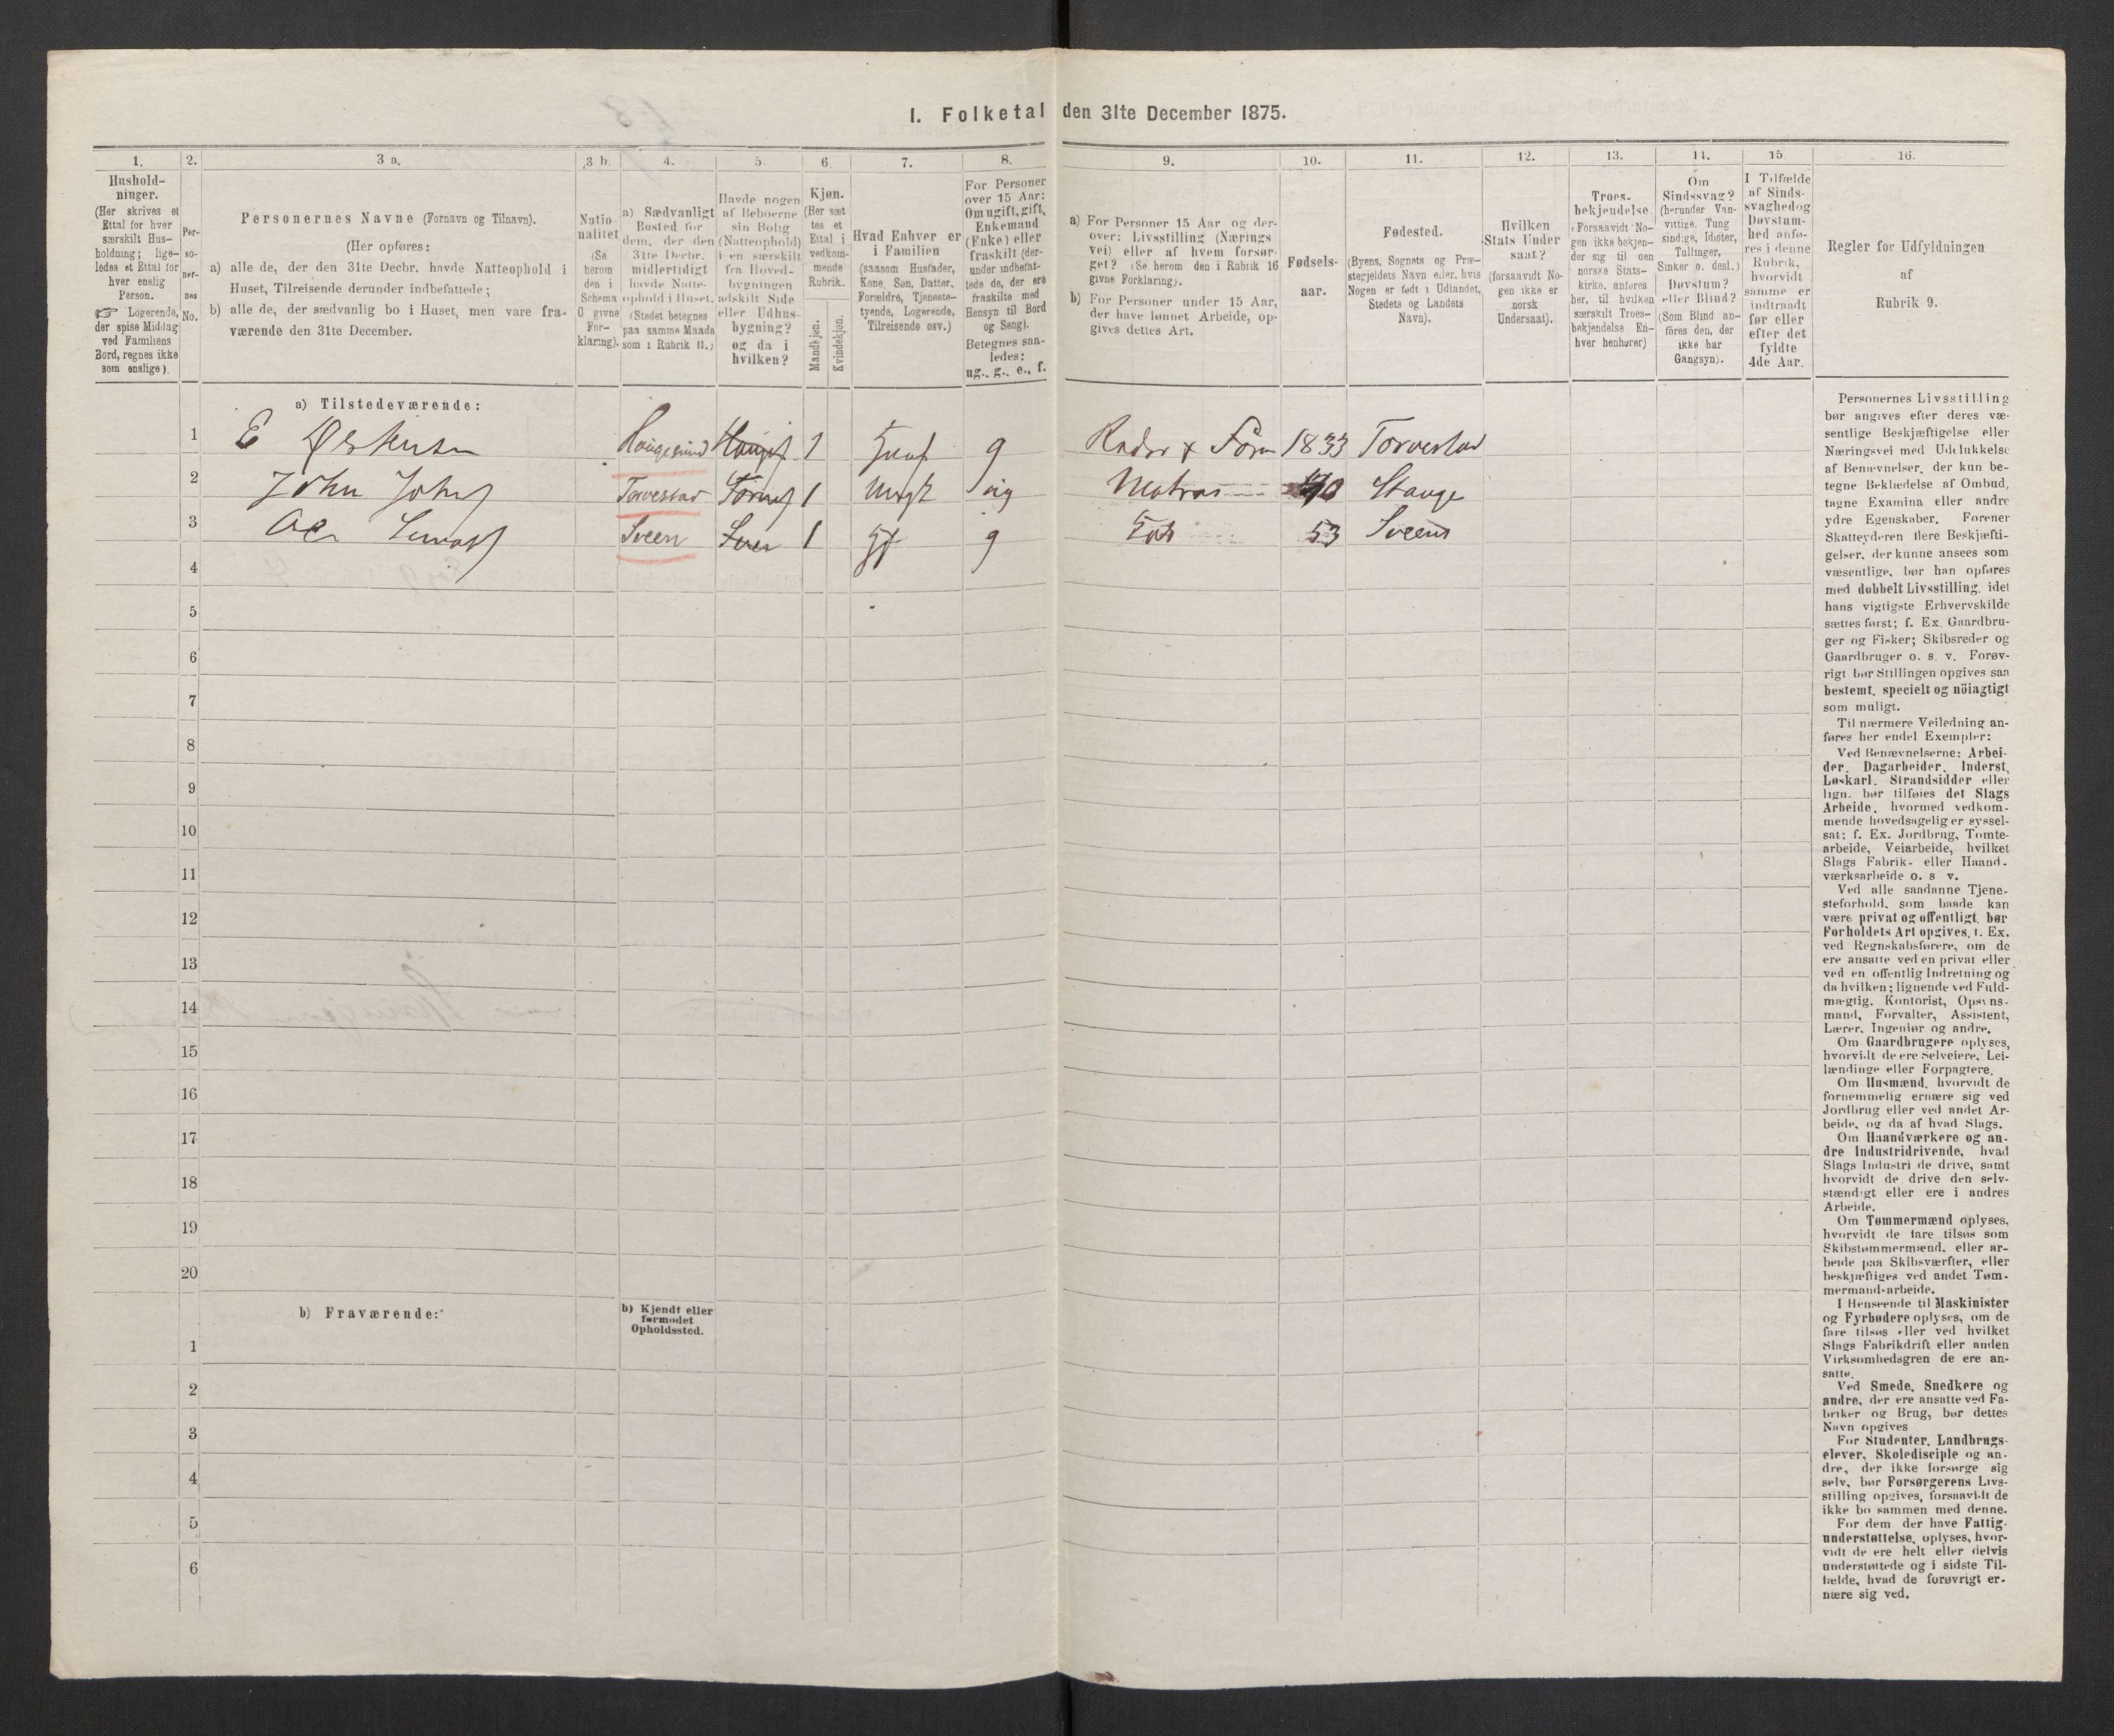 I. Folketal den 31te December 1875.
1.
Hushold-
ninger.
(Her skrives et
Ettal for hver
særskilt Hus-
holdning; lige-
ledes et Ettal for
hver enslig
Person.
☞ Logerende,
der spise Middag
ved Familiens
Bord, regnes ikke
som enslige).
2.
Per-
so-
ner-
nes
No.
3 a.
Personernes Navne (Fornavn og Tilnavn).
(Her opføres:
a) alle de, der den 31te Decbr. havde Natteophold i
Huset, Tilreisende derunder indbefattede;
b) alle de, der sædvanlig bo i Huset, men vare fra-
værende den 31te December.
3 b.
Natio-
nalitet
(Se
herom
den i
Schema
O givne
For-
klaring).
4.
a) Sædvanligt
Bosted for
dem, der den
31te Decbr.
midlertidigt
havde Natte-
ophold i Huset.
(Stedet betegnes
paa samme Maade
som i Rubrik 11.)
5.
Havde nogen
af Beboerne
sin Bolig
(Natteophold)
i en særskilt
fra Hoved-
bygningen
adskilt Side-
eller Udhus-
bygning?
og da i
hvilken?
6
Kjøn.
(Her sæt
tes et
Ettal i
vedkom-
mende
Rubrik.
Mandkjøn.
Kvindekjøn.
7.
Hvad Enhver er
i Familien
(saasom Husfader,
Kone, Søn, Datter,
Forældre, Tjeneste-
tyende, Logerende,
Tilreisende osv.)
8.
For Personer
over 15 Aar:
Om ugift, gift,
Enkemand
(Enke) eller
fraskilt (der-
under indbefat-
tede de, der ere
fraskilte med
Hensyn til Bord
og Seng).
Betegnes saa-
ledes:
ug., g., e., f.
9.
a) For Personer 15 Aar og der-
over: Livsstilling (Nærings
vei) eller af hvem forsør-
get? (Se herom den i Rubrik 16
givne Forklaring).
b) For Personer under 15 Aar,
der have lønnet Arbeide, op-
gives dettes Art.
10.
Fødsels-
aar.
11.
Fødested.
(Byens, Sognets og Præ-
stegjeldets Navn eller, hvis
Nogen er født i Udlandet,
Stedets og Landets
Navn).
12.
Hvilken
Stats Under
saat?
(forsaavidt No-
gen ikke er
norsk
Undersaat).
13.
Troes-
bekjendelse.
(Forsaavidt No-
gen ikke bekjen-
der sig til den
norske Stats-
kirke, anføres
her, til hvilken
særskilt Troes-
bekjendelse En-
hver henhører)
14.
Om
Sindssvag?
(herunder Van-
vittige, Tung
sindige, Idioter,
Tullinger,
Sinker o. desl.)
Døvstum?
eller Blind?
(Som Blind an-
føres den, der
ikke har
Gangsyn).
15.
I Tilfælde
af Sinds-
svaghed og
Døvstum-
hed anfø-
res i denne
Rubrik,
hvorvidt
samme er
indtraadt
før eller
efter det
fyldte
4de Aar.
16.
Regler for Udfyldningen
af
Rubrik 9.
a) Tilstedeværende:
1 E Haugesund 1 g 1833 Torvestad
2 John Johns Torvestad 1 ug Matros Stange
3 Sveen 1 g 53 Sveen
4
5
6
7
8
9
10
11
12
13
14
15
16
17
18
19
20
b) Fraværende:
b) Kjendt eller
formodet
Opholdssted.
1
2
3
4
5
6
Personernes Livsstilling
bør angives efter deres væ-
sentlige Beskjæftigelse eller
Næringsvei med Udelukkelse
af Benævnelser, der kun be-
tegne Beklædelse af Ombud,
tagne Examina eller andre
ydre Egenskaber. Forener
Skatteyderen flere Beskjæfti-
gelser, der kunne ansees som
væsentlige, bør han opføres
med dobbelt Livsstilling, idet
hans vigtigste Erhvervskilde
sættes først; f. Ex. Gaardbru-
ger og Fisker; Skibsreder og
Gaardbruger o. s. v. Forøv-
rigt bør Stillingen opgives saa
bestemt, specielt og nöiagtigt
som muligt.
Til nærmere Veiledning an-
føres her endel Exempler:
Ved Benævnelserne: Arbei-
der, Dagarbeider, Inderst,
Løskarl, Strandsidder eller
lign. bør tilføies det Slags
Arbeide, hvormed vedkom-
mende hovedsagelig er syssel-
sat; f. Ex. Jordbrug, Tomte-
arbeide, Veiarbeide, hvilket
Slags Fabrik- eller Haand-
værksarbeide o. s v.
Ved alle saadanne Tjene-
steforhold, som baade kan
være privat og offentligt, bør
Forholdets Art opgives, f. Ex.
ved Regnskabsførere, om de
ere ansatte ved en privat eller
ved en offentlig Indretning og
da hvilken; lignende ved Fuld-
mægtig, Kontorist, Opsyns-
mand, Forvalter, Assistent,
Lærer, Ingeniør og andre.
Om Gaardbrugere oplyses,
hvorvidt de ere Selveiere, Lei-
lændinge eller Forpagtere.
Om Husmænd, hvorvidt de
fornemmelig ernære sig ved
Jordbrug eller ved andet Ar-
beide, og da af hvad Slags.
Om Haandværkere og an-
dre Industridrivende, hvad
Slags Industri de drive, samt
hvorvidt de drive den selv-
stændigt eller ere i andres
Arbeide.
Om Tømmermænd oplyses,
hvorvidt de fare tilsøs som
Skibstømmermænd, eller ar-
beide paa Skibsværfter, eller
beskjæftiges ved andet Tøm-
mermand-arbeide.
I Henseende til Maskinister
og Fyrbødere oplyses, om de
fare tilsøs eller ved hvilket
Slags Fabrikdrift eller anden
Virksomhedsgren de ere an-
satte.
Ved Smede, Snedkere og
andre, der ere ansatte ved Fa-
briker og Brug, bør dettes
Navn opgives
For Studenter, Landbrugs-
elever, Skoledisciple og an-
dre, der ikke forsørge sig
selv, bør Forsørgerens Livs-
stilling opgives, forsaavidt de
ikke bo sammen med denne.
For dem der have Fattig-
understøttelse, oplyses, hvor-
vidt de ere helt eller delvis
understøttede og i sidste Til-
fælde, hvad de forøvrigt er-
nære sig ved.